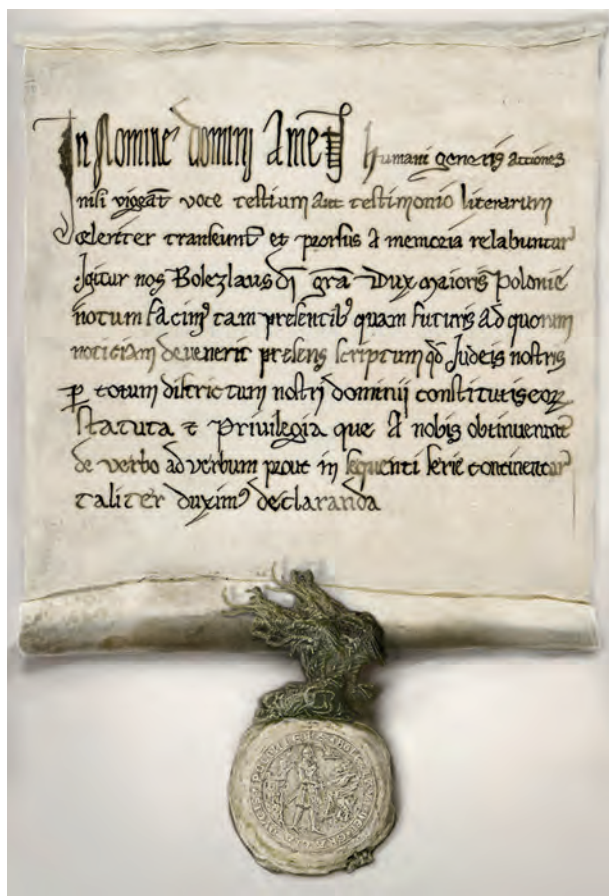 In Nomine domini Amen humani generis acciones
nisi vigeat̄ voce testium aut testimonio literarum
celeriter transeunt̄ et prorsus a memoria relabuntur
Igitur nos Bolezlaus di̅ gra̅ Dux maioris Polonie
notum facim⁹ tam presentib⁹ quam futuris ad quorum
noticiam devenerit presens scriptum qd̅ Judeis nostris
ꝑ totum districtum nostri dominii constitutis eoꝝ
statuta ⁊ privilegia que a nobis obtinuerunt
de verbo ad verbum prout in sequenti serie continentur
taliter duxim⁹ declaranda